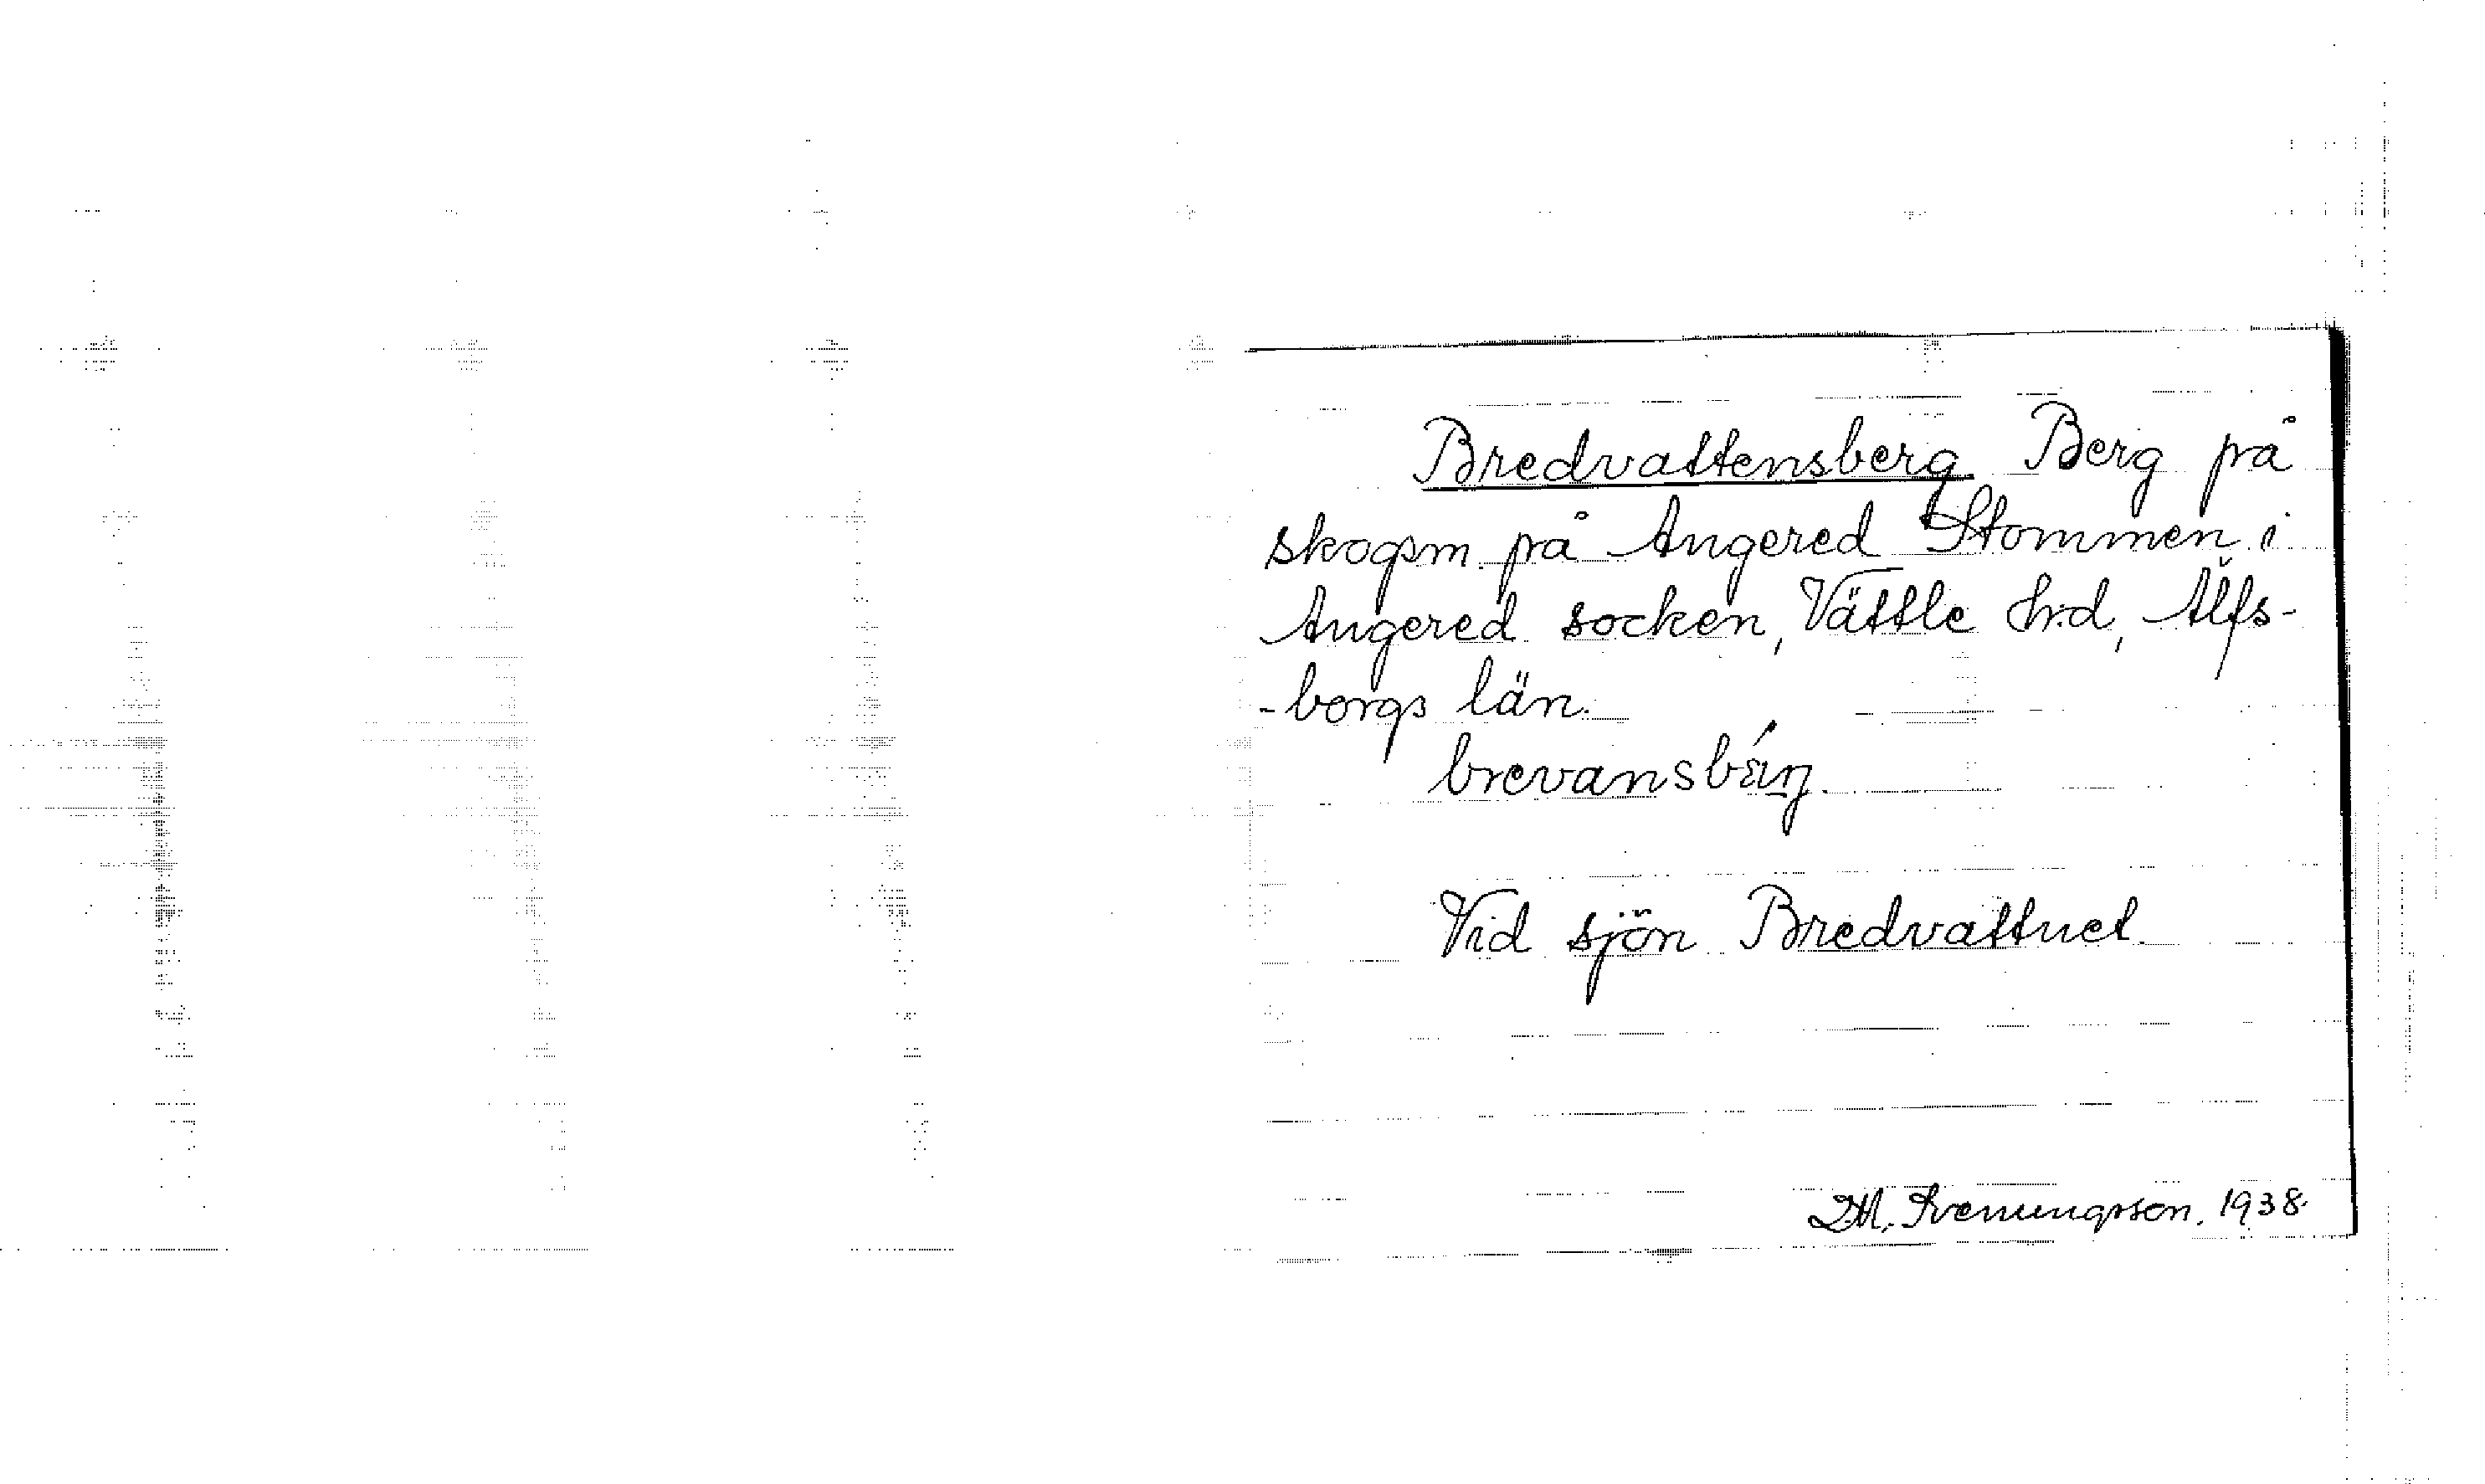 Bredvattensberg Berg på
skogsm på Angered Stommen i
Angered socken, Vättle hrd, Älfs-
-borgs län.
Vid sjön Bredvattnet
Svenungsson. 1938.